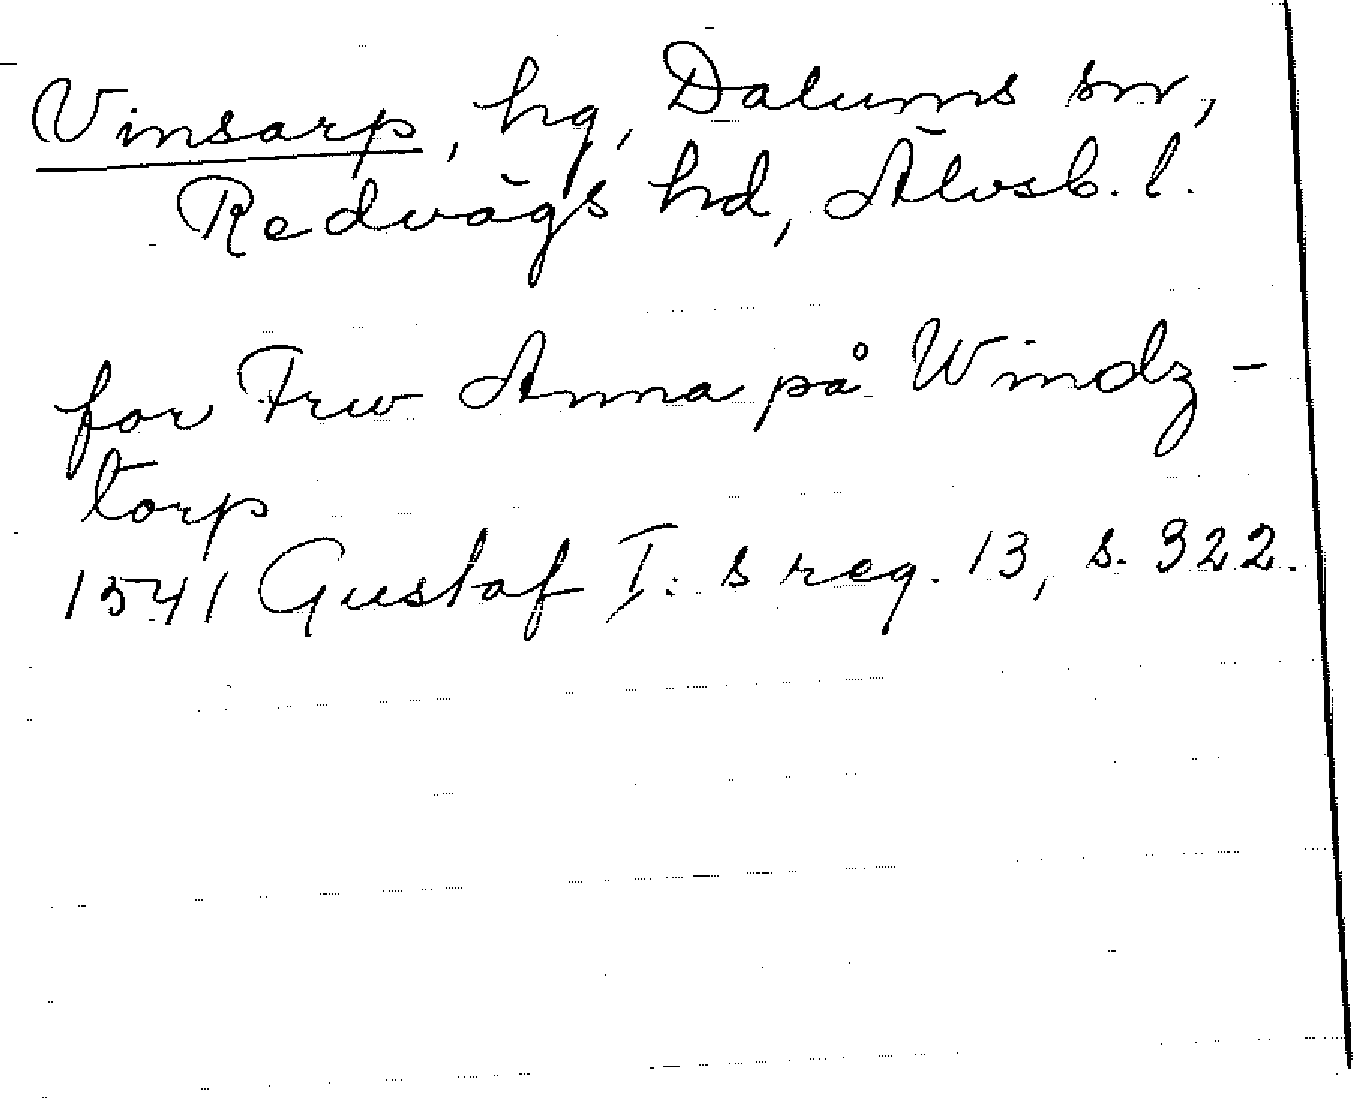 Vinsarp, hg, Dalums sn,
Redvägs hd, Älvsb. l.
for Frw Anna på Windz-
torp
1541 Gustaf I:s reg. 13, s. 322.